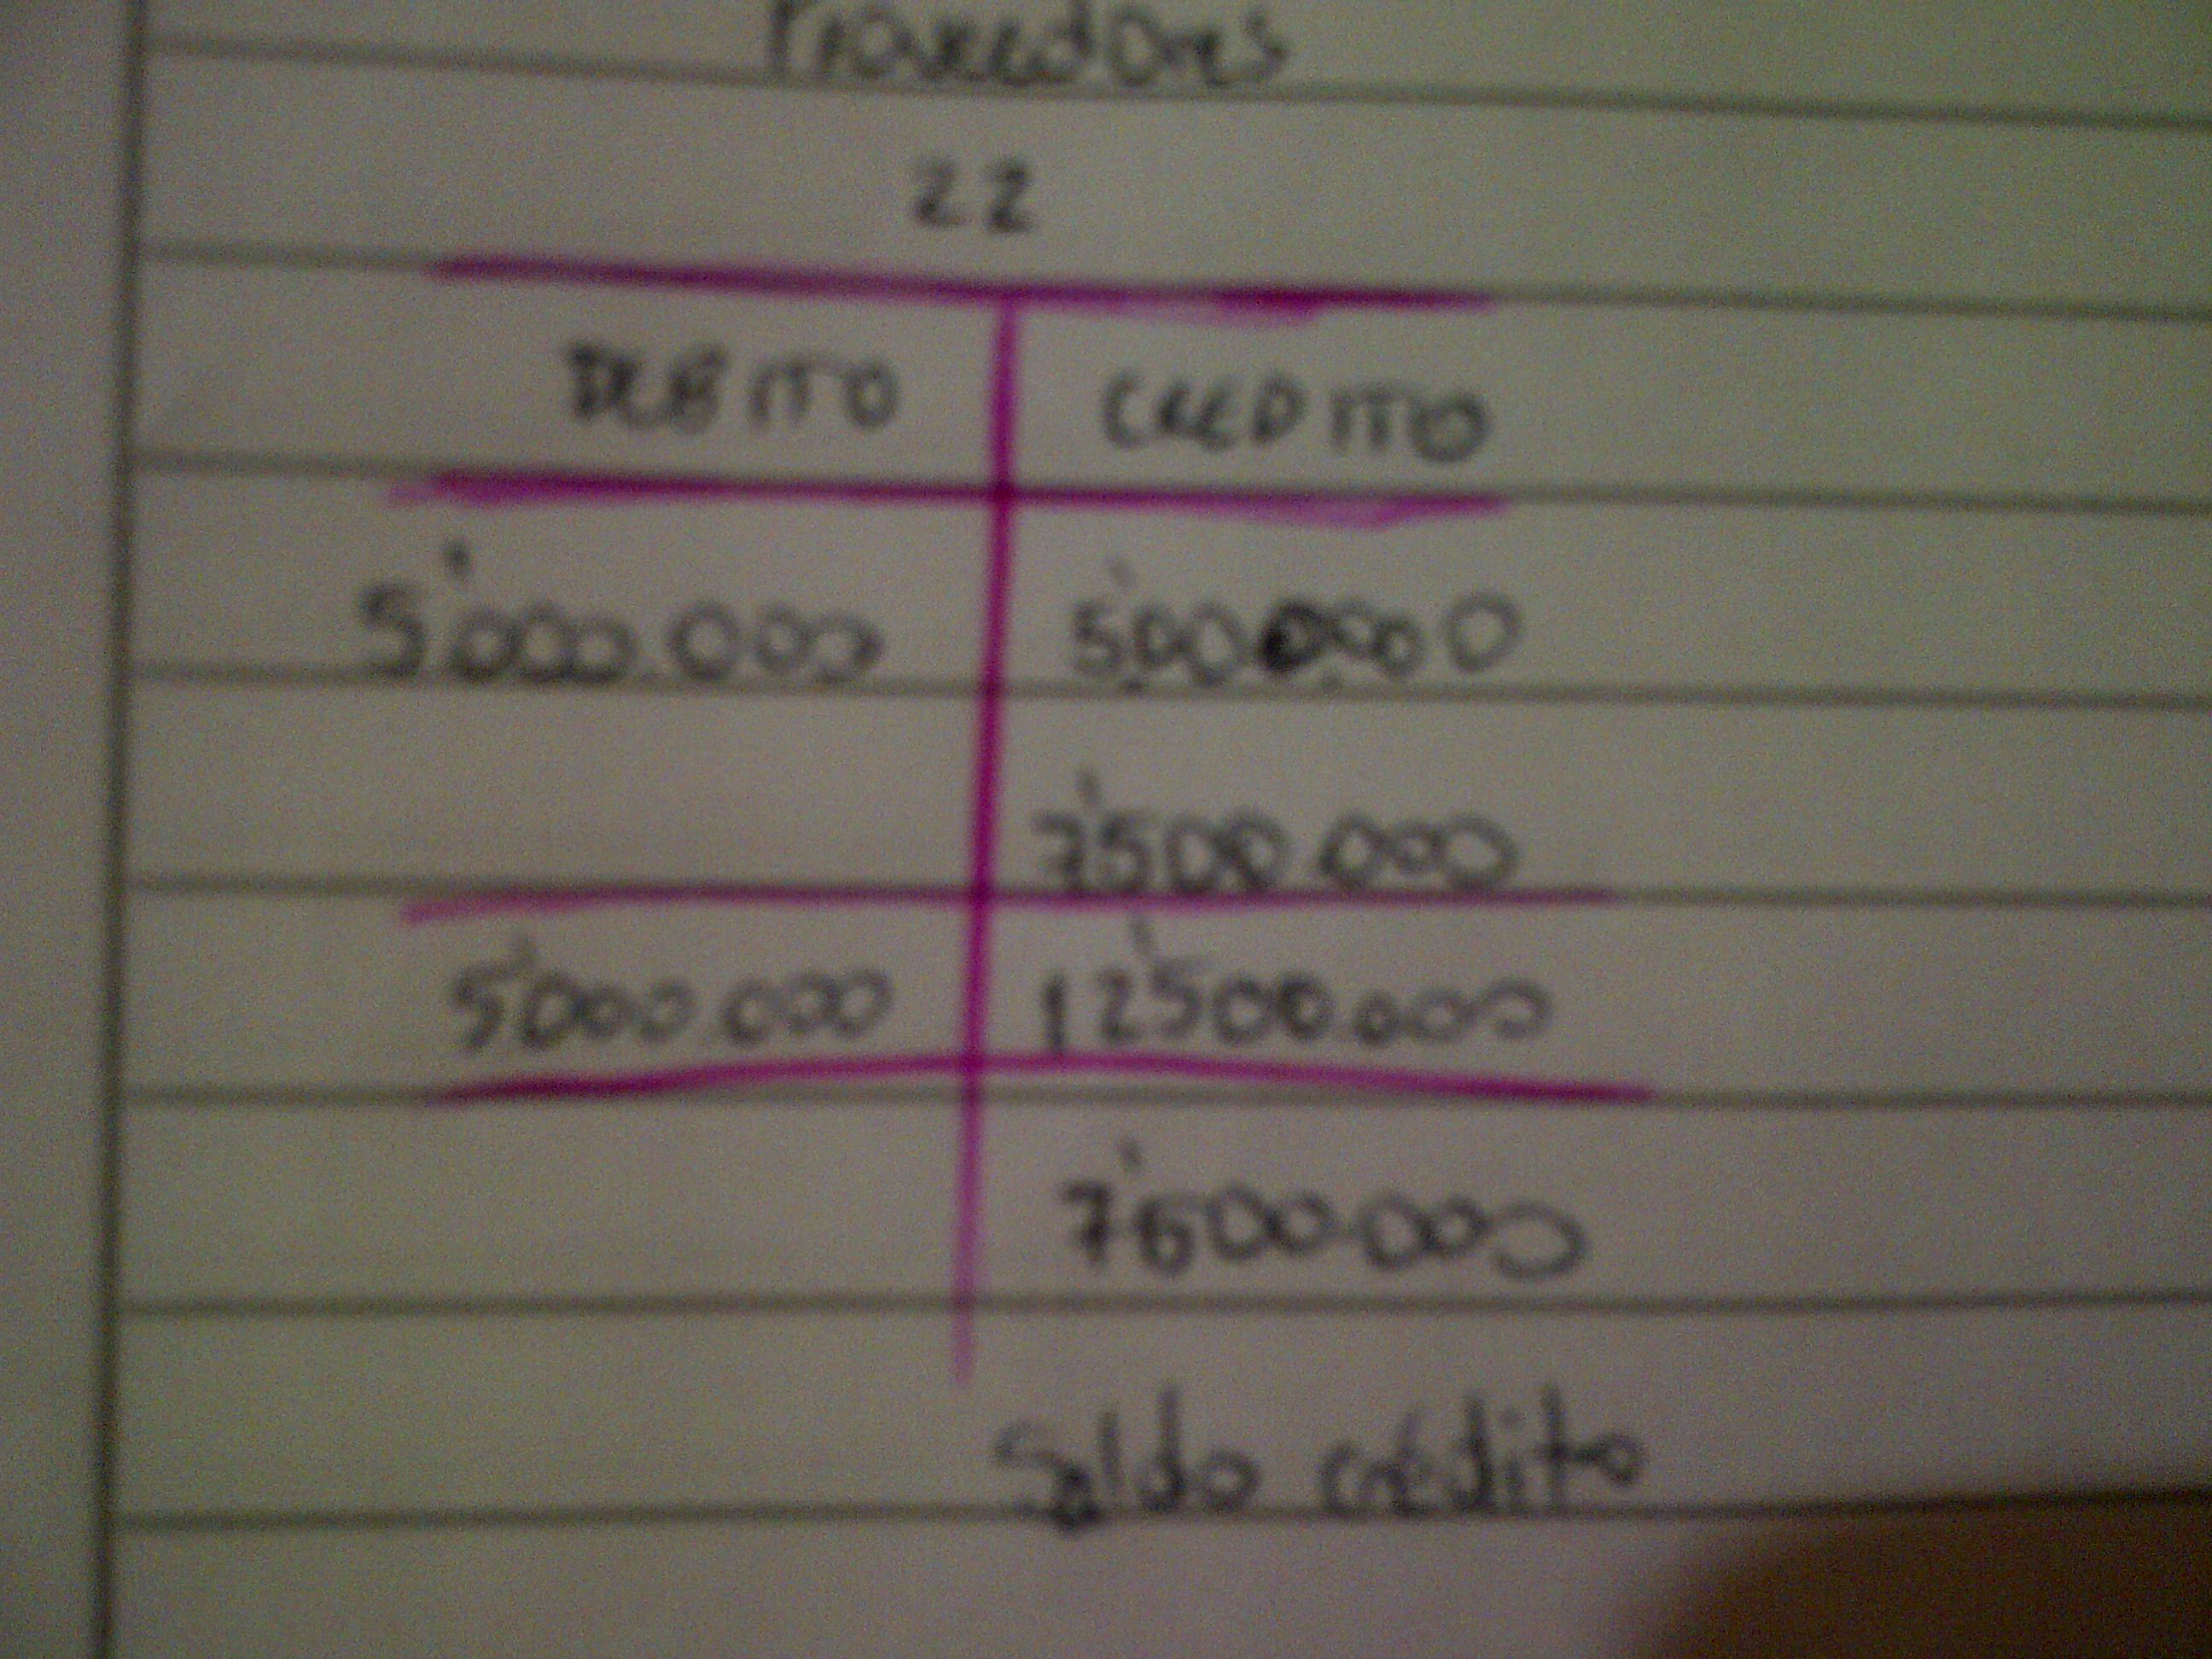 Proveedores
22
DEBITO CREDITO
5'000.000 5'000.000
7'500.000
5'000.000 12'500.000
7'500.000
Saldo crédito